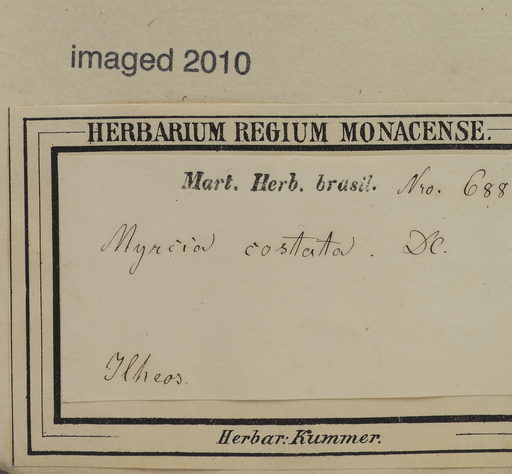 imaged 2010
HERBARIUM REGIUM MONACENSE.
Mart. Herb. brasil. Nro. 688
Myrcia costata. DC.
Ilheos.
Herbar: Kummer.